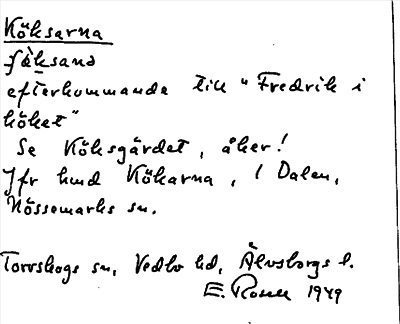 Köksarna
efterkommande till "Fredrik i
köket"
Se Köksgärdet, åker!
Jfr hmd Kökarna, 1 Dalen,
Nössemarks sn.
Torrskogs sn, Vedbo hd, Älvsborgs l.
E. Rosell 1949